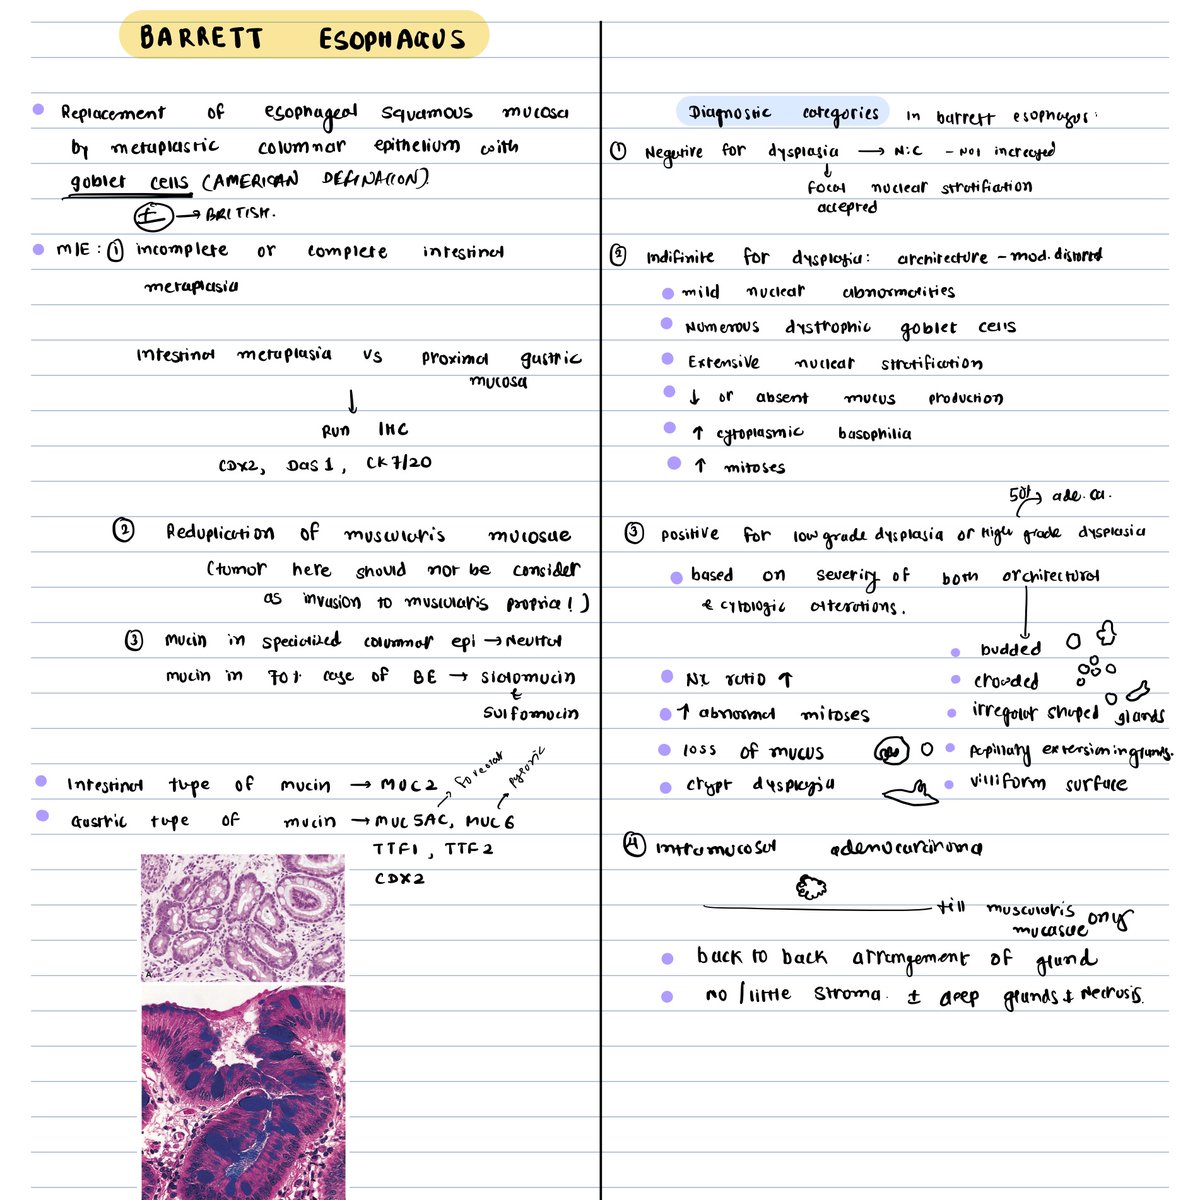 BARRETT ESOPHAGUS
Replacement of esophageal squamous mucosa
by metaplastic columnar epithelium with
goblet cells (AMERICAN DEFINATION).
± → BRITISH.
MIE: ① incomplete or complete intestinal
metaplasia
Intestinal metaplasia vs proximal gastric
mucosa
↓
Run IHC
CDX2, Das1, CK7/20
② Reduplication of muscularis mucosae
(tumor here should not be consider
as invasion to muscularis propria!)
③ mucin in specialized columnar epi → Neutral
mucin in 70% case of BE → sialomucin
&
sulfomucin
Intestinal type of mucin → MUC2
Gastric type of mucin → MUC5AC, MUC6
foveolar
pyloric
TTF1, TTF2
CDX2
A
Diagnostic categories In barrett esophagus:
① Negative for dysplasia → N:C - Not increased
↓
focal nuclear stratifiation
accepted
② Indifinite for dysplasia: architecture - mod. distored
mild nuclear abnormalities
Numerous dystrophic goblet cells
Extensive nuclear stratification
↓ or absent mucus production
↑ cytoplasmic basophilia
↑ mitoses
50% → ade. ca.
③ positive for low grade dysplasia or High grade dysplasia
based on severity of both architectural
& cytologic alterations.
budded
crowded
irregular shaped glands
papillary extension in glands.
villiform surface
ratio ↑
↑ abnormal mitoses
loss of mucus
crypt dysplasia
④ intramucosal adenocarcinoma
till muscularis
mucasae only
back to back arrangement of gland
no / little stroma. ± deep glands ± necrosis.